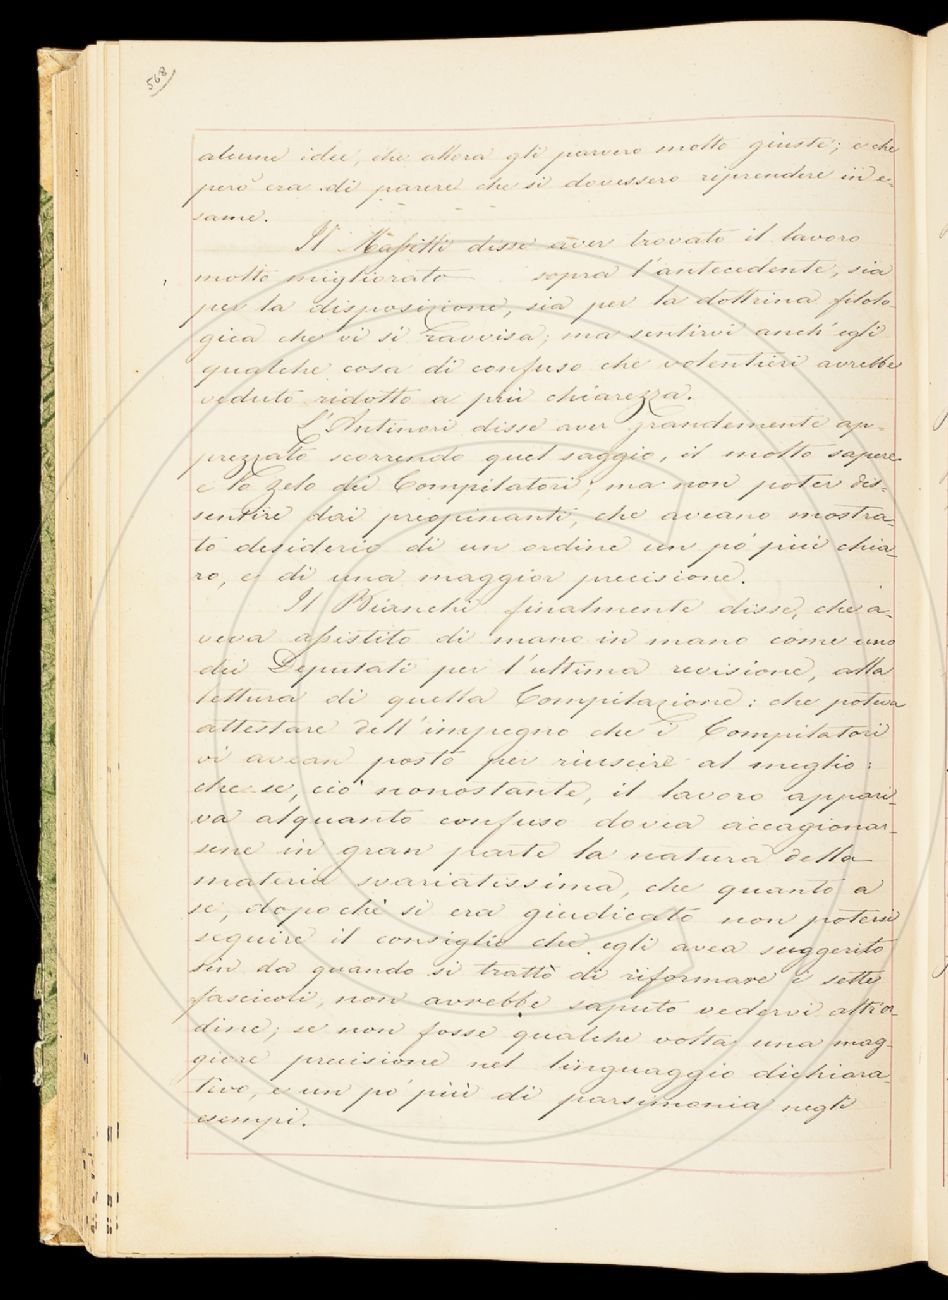 568
alcune idee, che allora gli parvero molto giuste; e che
però era di parere che si dovessero riprendere in e-
same.
Il Masetti disse aver trovato il lavoro
molto migliorato sopra l'antecedente, sia
per la disposizione, sia per la dottrina filolo-
gica che vi si ravvisa; ma sentirvi anch'egli
qualche cosa di confuso che volentieri avrebbe
veduto ridotto a più chiarezza.
L'Antinori disse aver grandemente ap-
prezzato scorrendo quel saggio, il molto sapere
e lo zelo dei Compilatori; ma non poter dis-
sentire dai preopinanti, che aveano mostra-
to desiderio di un ordine un po' più chia-
ro, e di una maggior precisione.
Il Bianchi finalmente disse, che a-
veva assistito di mano in mano come uno
dei Deputati per l'ultima revisione, alla
lettura di quella Compilazione: che poteva
attestare dell'impegno che i Compilatori
vi avean posto per riuscire al meglio:
che se, ciò nonostante, il lavoro appari-
va alquanto confuso dovea accagionar-
sene in gran parte la natura della
materia svariatissima, che quanto a
se, dopo chè si era giudicato non potersi
seguire il consiglio che egli avea suggerito
sin da quando si trattò di riformare i sette
fascicoli, non avrebbe saputo vedervi altr'or-
dine; se non fosse qualche volta una mag-
giore precisione nel linguaggio dichiara-
tivo, e un po' più di parsimonia negli
esempi.